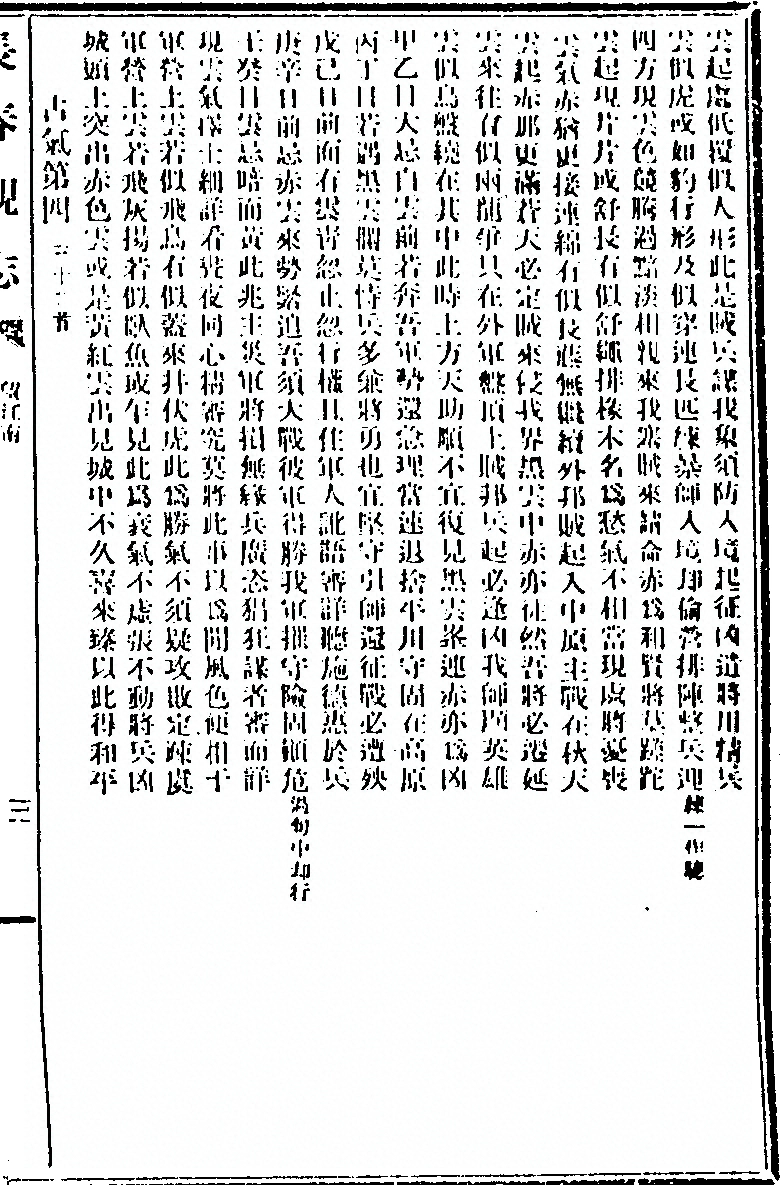 雲起處低覆似人形此是賊兵謀我象須防入境起征凶遣將用精兵
雲似虎或如豹行形及似穿連長匹練暴師入境却偷營排陣整兵迎 練一作騎
四方現雲色競騰過黯淡相親來我寨賊來請命赤為和賢將莫蹉跎
雲起現片片或舒長有似舒繩排椽木名為愁氣不相當現處將憂喪
雲氣赤猶更接連綿有似長蛇無斷續外邦賊起入中原主戰在秋天
雲起赤那更滿蒼天必定賊來侵我界黑雲中赤亦徒然吾將必遷延
雲來往有似兩龍爭只在外軍盤頂上賊邦兵起必逢凶我師顯英雄
雲似鳥盤繞在其中此時上方天助順不宜復見黑雲条連赤亦為凶
甲乙日大忌白雲前若奔吾軍勢還急理當速退捨平川守固在高原
丙丁日若遇黑雲關莫恃兵多兼將勇也宜堅守引師還征戰必遭殃
戊己日前面有雲青忽止忽行權且住軍人訛語審詳聽施德惠於兵
庚辛日前忌赤雲來勢緊迫吾須大戰彼軍得勝我軍摧守險固傾危 為句中却行
壬癸日雲忌暗而黃此兆主災軍將損無緣兵廣恣猖狂謀者審而詳
現雲氣擇士細詳看晨夜同心精審究莫將此事以為閒風色便相干
軍營上雲若似飛鳥有似蓋來并伏虎此為勝氣不須疑攻敵定疎虞
軍營上雲若飛灰揚若似臥魚或乍見此為衰氣不虛張不動將兵凶
城頭上突出赤色雲或是黃紅雲出見城中不久喜來臻以此得和平
占氣第四 三十二首
三